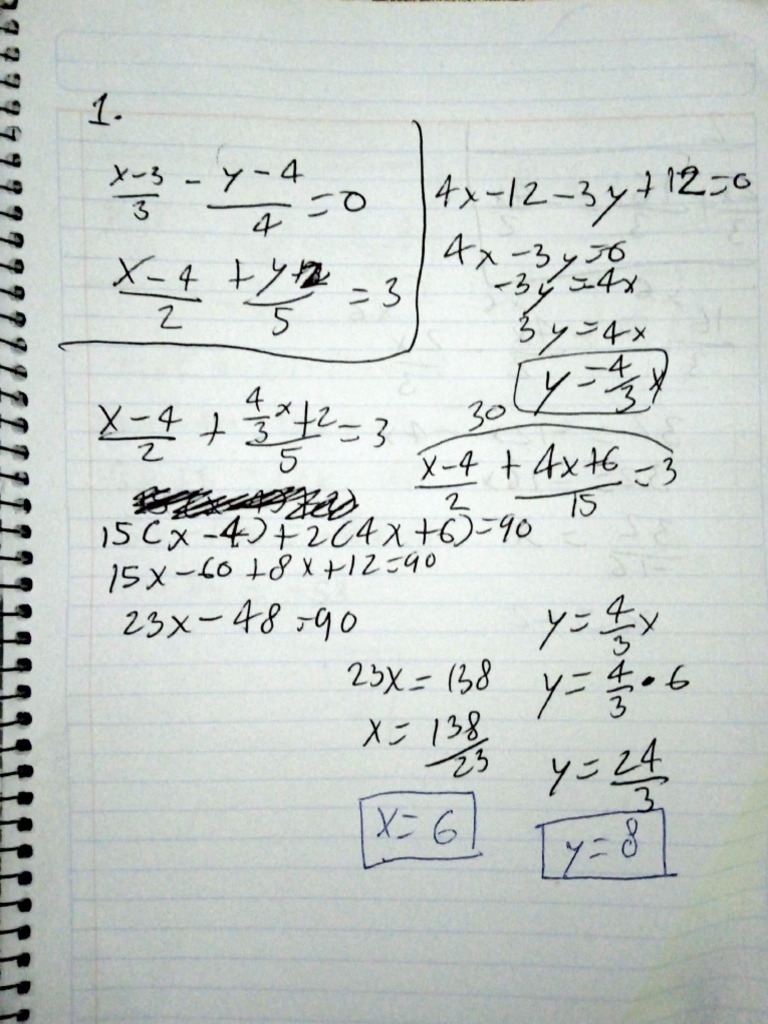 1.
x-3/3 - y-4/4 = 0
x-4/2 + y+2/5 = 3
4x-12-3y+12=0
4x-3y=0
-3y=4x
3y=4x
y=4/3x
x-4/2 + 4/3x+2/5 = 3
30
x-4/2 + 4x+6/15 = 3
15(x-4)+2(4x+6)=90
15x-60+8x+12=90
23x-48=90
23x=138
x=138/23
x=6
y=4/3x
y=4/3•6
y=24/3
y=8